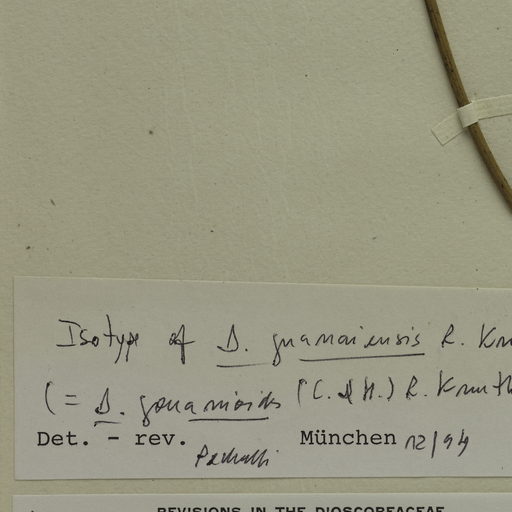 Isotype of D. guanaiensis R. Knu
(= D. (C. & H.) R. Knuth
Det. - rev. München 12/94
REVISIONS IN THE DIOSCOREACEAE